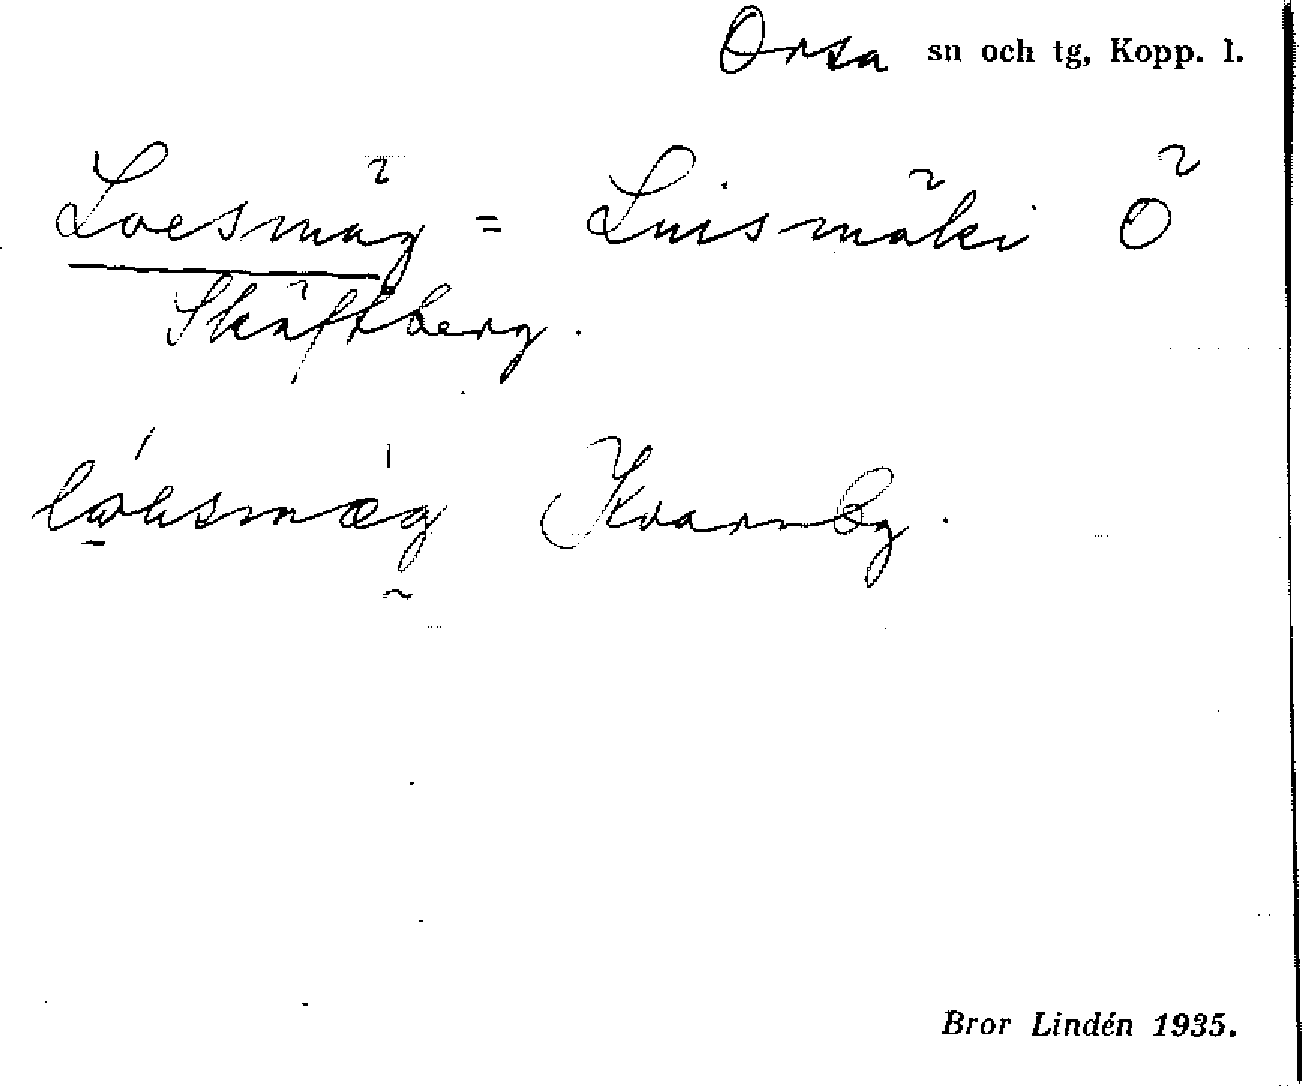 Orsa sn och tg, Kopp. l.
Loesmäg = Luismäki Ö
Skäftberg.
Kvarnbg.
Bror Lindén 1935.